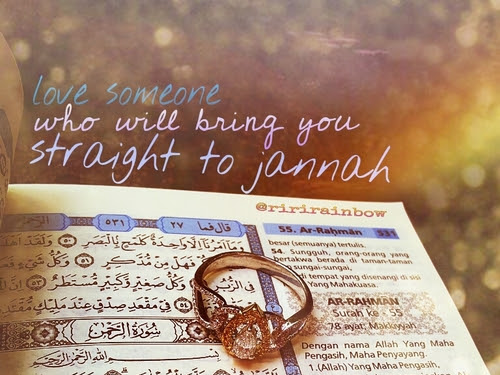 love someone
who will bring you
straight to jannah
@riririrainbow
الرحمن ٥٣١ قال فما ٢٧
55. Ar-Rahmān 531
وَمَا أَمْرُنَا إِلَّا وَاحِدَةٌ كَلَمْحٍ بِالْبَصَرِ ٥٠ وَلَقَدْ
فَهَلْ مِنْ مُدَّكِرٍ ٥١ وَكُلُّ شَيْءٍ فَعَلُوهُ
فِي الزُّبُرِ ٥٢ وَكُلُّ صَغِيرٍ وَكَبِيرٍ مُسْتَطَرٌ ٥٣
فِي مَقْعَدِ صِدْقٍ عِنْدَ مَلِيكٍ
سُورَةُ الرَّحْمٰنِ
بِسْمِ اللهِ الرَّحْمٰنِ
besar (semuanya) tertulis.
54. Sungguh, orang-orang yang
bertakwa berada di taman-taman
sungai-sungai,
di tempat yang disenangi di sisi
Yang Mahakuasa.
AR-RAHMAN
Surah ke - 55
78 ayat: Makkiyyah
Dengan nama Allah Yang Maha
Pengasih, Maha Penyayang.
1. (Allah) Yang Maha Pengasih,